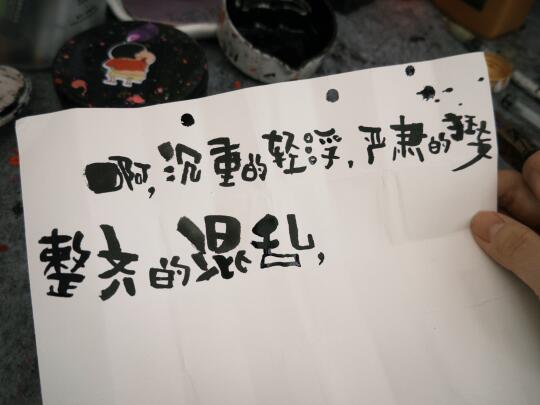 啊,沉重的轻浮,严肃的狂妄
整齐的混乱,